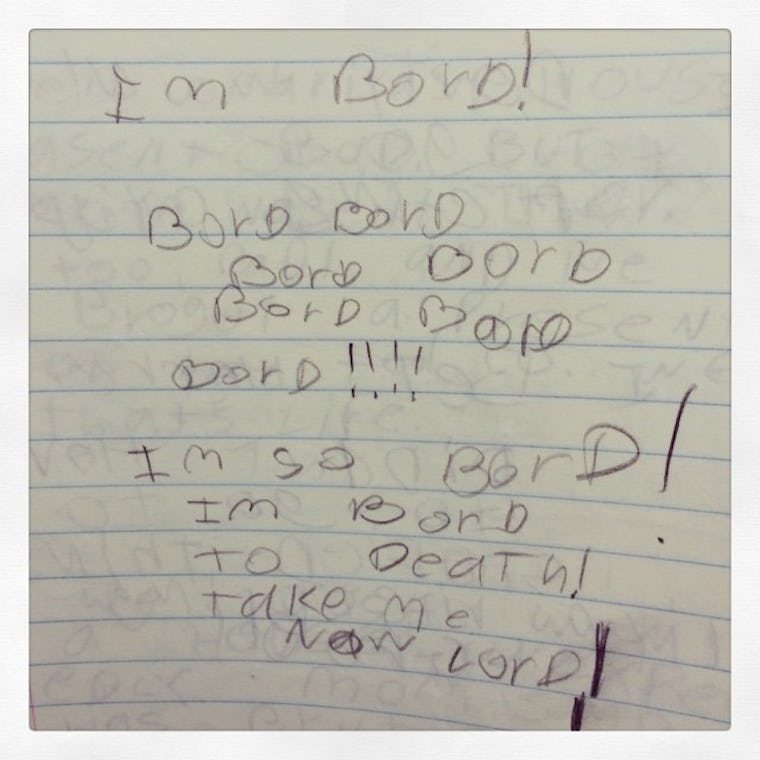 Im BorD!
BorD BorD
BorD BorD
BorD BorD
BorD !!!!
Im so BorD!
Im BorD
to DeatH!
take me
Now LorD!